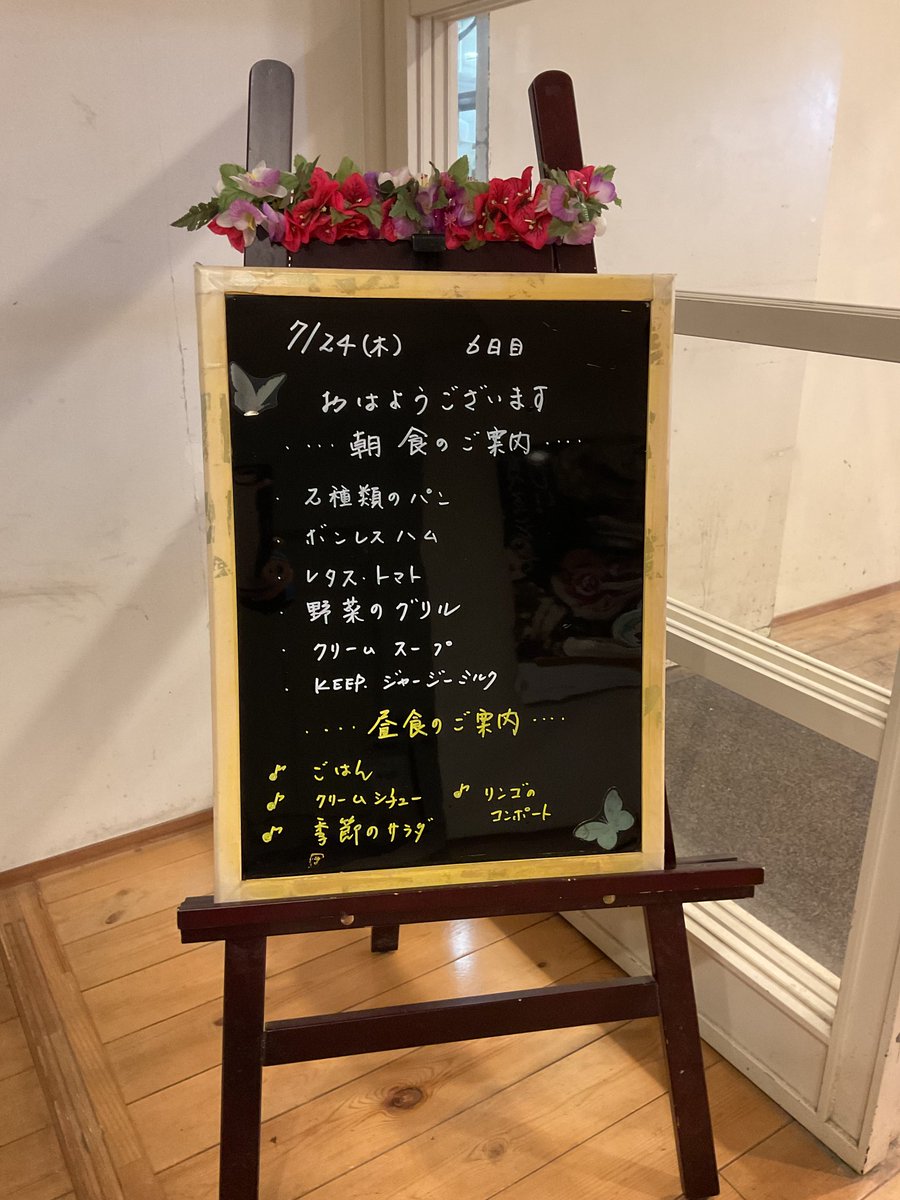 7/24(木) 6日目
おはようございます
‥‥朝食のご案内‥‥
・2種類のパン
・ボンレスハム
・レタス・トマト
・野菜のグリル
・クリームスープ
・KEEP.ジャージーミルク
‥‥昼食のご案内‥‥
♪ ごはん
♪ クリームシチュー
♪ 季節のサラダ
♪ リンゴの
コンポート